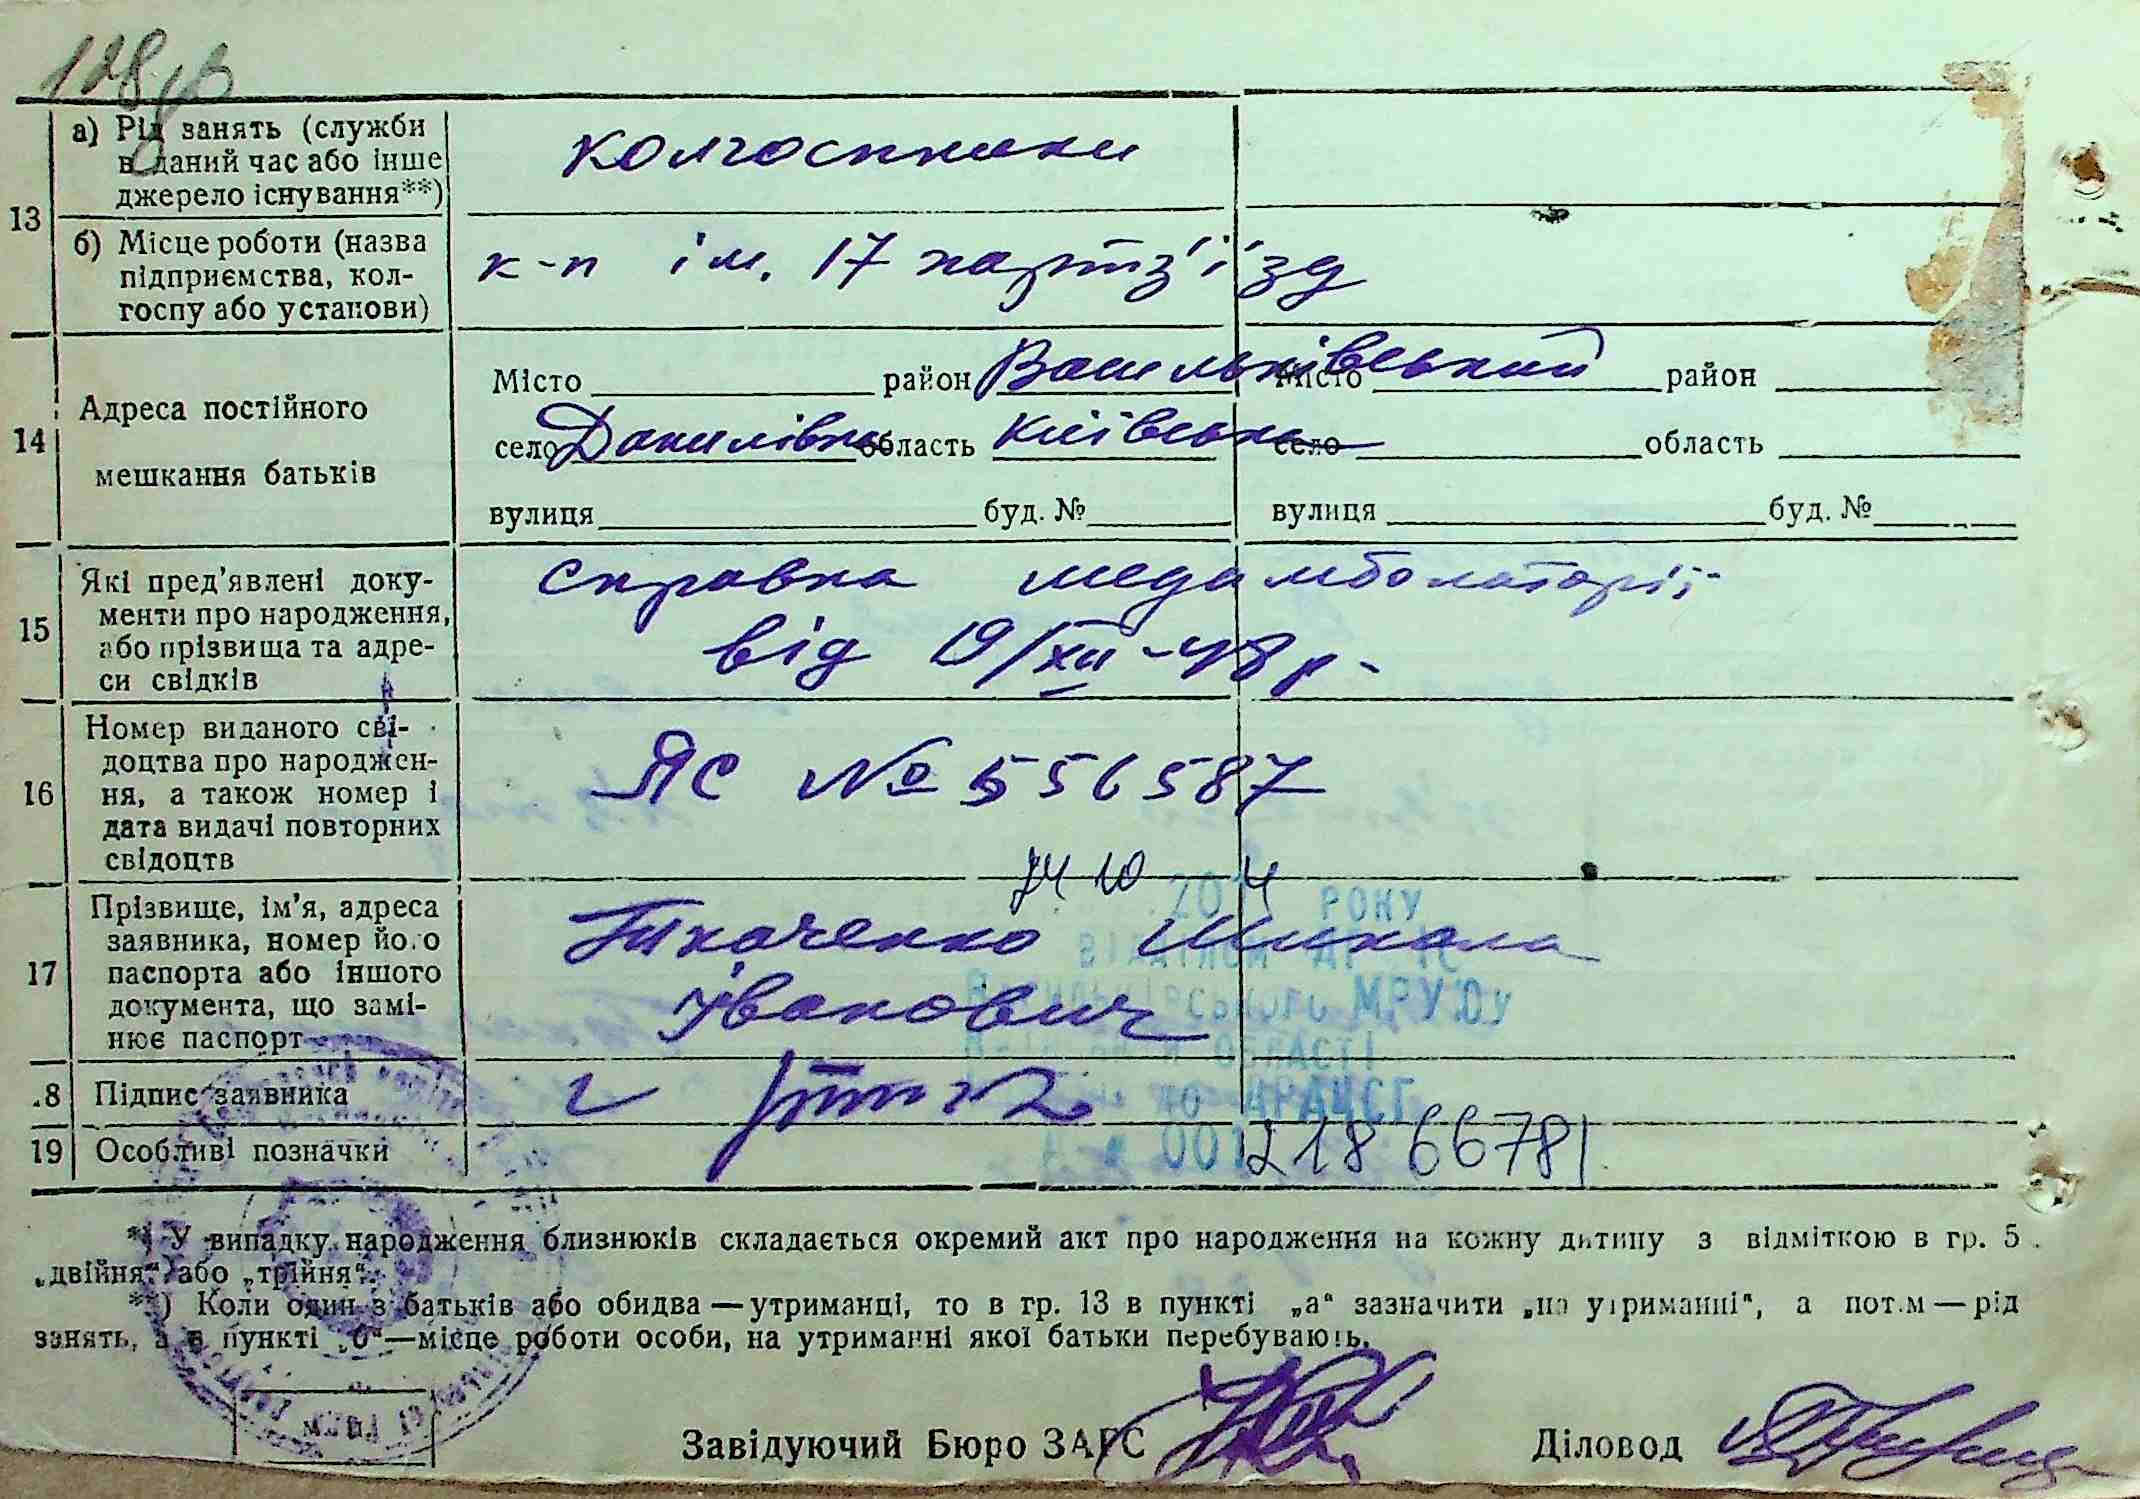 128
13
а) Рід занять (служби
в даний час або інше
джерело існування**)
колгоспники
б) Місце роботи (назва
підприємства, кол-
госпу або установи)
к-п ім. 17 партз'їзд
14
Адреса постійного
мешкання батьків
Місто район Васильківський Місто район
село Данилівка область Київська село область
вулиця буд. № вулиця буд. №
15
Які пред'явлені доку-
менти про народження,
або прізвища та адре-
си свідків
справка медамболаторії
від 19/XII-48 р.
16
Номер виданого сві-
доцтва про народжен-
ня, а також номер і
дата видачі повторних
свідоцтв
ЯС № 556587
17
Прізвище, ім'я, адреса
заявника, номер його
паспорта або іншого
документа, що замі-
нює паспорт
Ткаченко Микола
Іванович
24 10 2014 РОКУ
ВІДДІЛОМ ДРАЦС
Васильківського МРУЮ
ОБЛАСТІ
до ДРАЦСГ
А № 00121866781
18 Підпис заявника
19 Особливі позначки
*) У випадку народження близнюків складається окремий акт про народження на кожну дитину з відміткою в гр. 5
„двійня“ або „трійня“.
**) Коли один з батьків або обидва — утриманці, то в гр. 13 в пункті „а“ зазначити „на утриманні“, а потім — рід
занять, а в пункті „б“ — місце роботи особи, на утриманні якої батьки перебувають.
Завідуючий Бюро ЗАГС Діловод